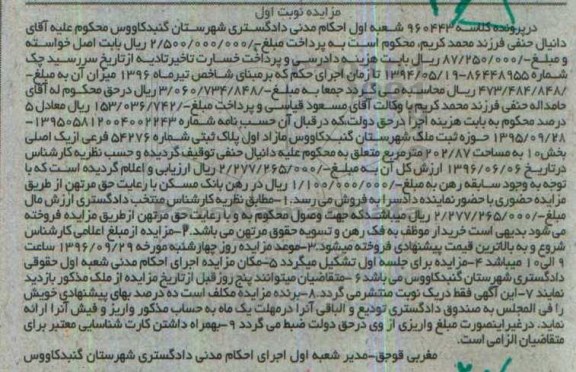 مزایده نوبت اول
درپرونده کلاسه ۹۶۰۴۴۳ شعبه اول احکام مدنی دادگستری شهرستان گنبدکاووس محکوم علیه آقای
دانیال حنفی فرزند محمد کریم، محکوم است به پرداخت مبلغ-/۲/۵۰۰/۰۰۰/۰۰۰ ریال بابت اصل خواسته
و مبلغ-/۸۷/۲۵۰/۰۰۰ ریال بابت هزینه دادرسی و پرداخت خسارت تاخیرتادیه ازتاریخ سررسید چک
شماره ۸۶۴۴۸۹۵۵-۱۳۹۴/۰۵/۱۹ تا زمان اجرای حکم که برمبنای شاخص تیرماه ۱۳۹۶ میزان آن به مبلغ-
/۴۷۳/۴۸۴/۸۴۸ ریال محاسبه می گردد جمعا به مبلغ-/۳/۰۶۰/۷۳۴/۸۴۸ ریال درحق محکوم له آقای
حامداله حنفی فرزند محمد کریم با وکالت آقای مسعود قیاسی و پرداخت مبلغ-/۱۵۳/۰۳۶/۷۴۲ ریال معادل ۵
درصد محکوم به بابت هزینه اجرا درحق دولت،که درقبال آن حسب نامه شماره ۱۳۹۵۰۵۸۱۲۰۰۴۰۰۲۲۴۳-
۱۳۹۵/۰۹/۲۸ حوزه ثبت ملک شهرستان گنبدکاووس مازاد اول پلاک ثبتی شماره ۵۴۲۷۶ فرعی ازیک اصلی
بخش۱۰ به مساحت ۲۰۲/۸۷ مترمربع متعلق به محکوم علیه دانیال حنفی توقیف گردیده و حسب نظریه کارشناس
درتاریخ ۱۳۹۶/۰۶/۰۶ ارزش کل آن به مبلغ-/۲/۲۷۷/۲۶۵/۰۰۰ ریال ارزیابی و اعلام گردیده است که با
توجه به وجود سابقه رهن به مبلغ-/۱/۱۰۰/۰۰۰/۰۰۰ ریال در رهن بانک مسکن با رعایت حق مرتهن از طریق
مزایده حضوری با حضور نماینده دادسرا به فروش می رسد.۱-مطابق نظریه کارشناس منتخب دادگستری ارزش مال
مبلغ-/۲/۲۷۷/۲۶۵/۰۰۰ ریال میباشد که جهت وصول محکوم به و با رعایت حق مرتهن ازطریق مزایده فروخته
می شود بدیهی است خریدار موظف به فک رهن و تسویه حقوق مرتهن می باشد.۲-مزایده از مبلغ اعلامی کارشناس
شروع و به بالاترین قیمت پیشنهادی فروخته میشود.۳-موعد مزایده روز چهارشنبه مورخه ۱۳۹۶/۰۹/۲۹ ساعت
۹ الی۱۰ میباشد ۴-مزایده برای جلسه اول تشکیل میگردد ۵-مکان مزایده اجرای احکام مدنی شعبه اول حقوقی
دادگستری شهرستان گنبدکاووس می باشد ۶-متقاضیان میتوانند پنج روز قبل ازتاریخ مزایده از ملک مذکور بازدید
نمایند ۷-این آگهی فقط دریک نوبت منتشرمی گردد.۸-برنده مزایده مکلف است ده درصد بهای پیشنهادی خویش
را فی المجلس به صندوق دادگستری تودیع و الباقی آنرا درمهلت یک ماه به حساب مذکور واریز و فیش آنرا ارائه
نماید. درغیراینصورت مبلغ واریزی از وی درحق دولت ضبط می گردد ۹-بهمراه داشتن کارت شناسایی معتبر برای
متقاضیان الزامی است.
مغربی قوجق-مدیر شعبه اول اجرای احکام مدنی دادگستری شهرستان گنبدکاووس